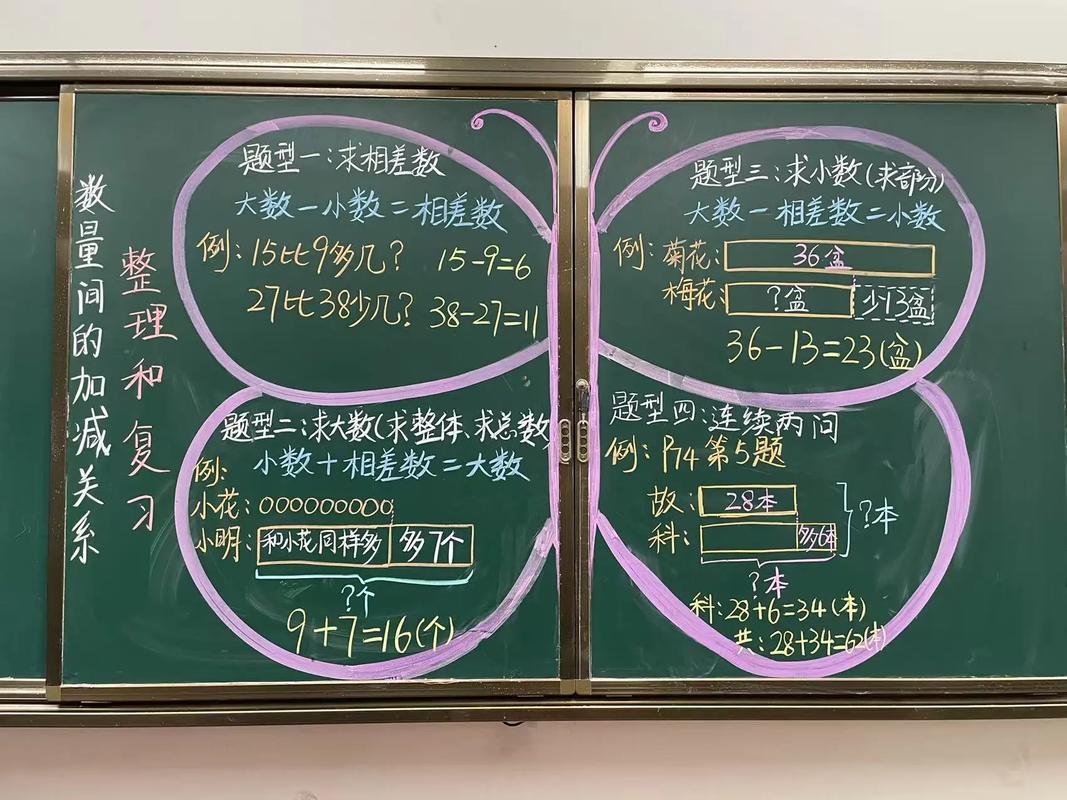 数量间的加减关系
整理和复习
题型一:求相差数
大数-小数=相差数
例:15比9多几? 15-9=6
27比38少几? 38-27=11
题型二:求大数(求整体、求总数
小数+相差数=大数
例:
小花:
小明: 和小花同样多 多7个
?个
9+7=16(个)
题型三:求小数(求部分)
大数-相差数=小数
例:菊花: 36盆
梅花: ?盆 少13盆
36-13=23(盆)
题型四:连续两问
例:P74第5题
故: 28本
?本
科: 多6本
?本
科:28+6=34(本)
共:28+34=62(本)